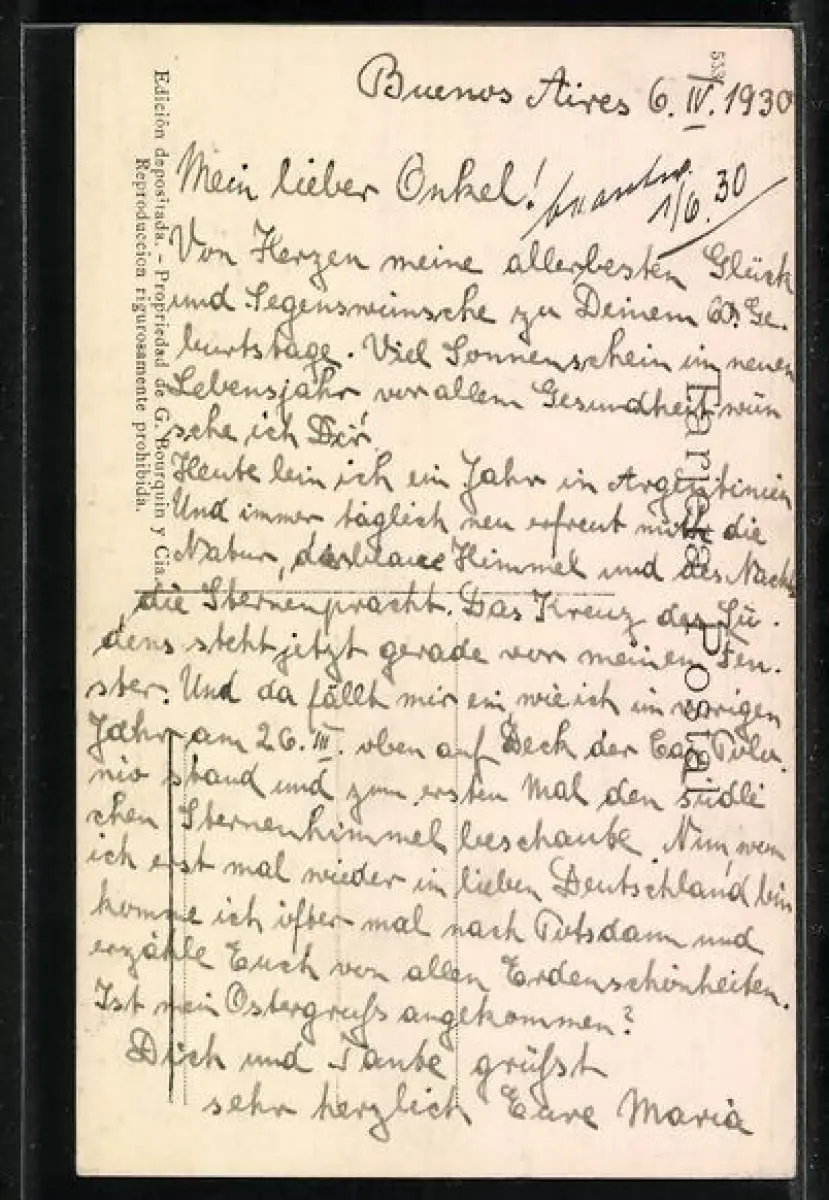 Buenos Aires 6. IV. 1930
Mein lieber Onkel!
1/6. 30
Von Herzen meine allerbesten Glück
und Segenswünsche zu Deinem Ge-
burtstage. Viel Sonnenschein im neuen
Lebensjahr vor allem Gesundheit wün
sche ich Dir!
Heute bin ich ein Jahr in Argentinien
Und immer täglich neu erfreut mich die
Natur, der blaue Himmel und des Nachts
die Sternenpracht. Das Kreuz des Sü-
dens steht jetzt gerade vor meinem Fen-
ster. Und da fällt mir ein, wie ich im vorigen
Jahr am 26. III. oben auf Deck der Cap Polo
nio stand und zum ersten Mal den südli
chen Sternenhimmel beschaute. Nun, wenn
ich erst mal wieder im lieben Deutschland bin
komme ich öfter mal nach Potsdam und
erzähle Euch von allen Erdenschönheiten.
Ist mein Ostergruß angekommen?
Dich und Tante grüßt
sehr herzlich Eure Maria
Edición depositada. - Propriedad de G. Bourquin y Cia.
Reproduccion rigurosamente prohibida.
Tarjeta Postal